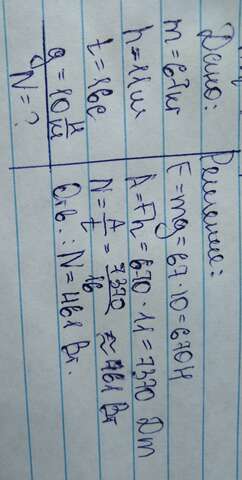 Дано:
m=67кг
h=11м
t=16с
g=10 Н/кг
N=?
Решение:
F=mg=67·10=670Н
A=Fh=670·11=7370 Дж
N=A/t=7370/16≈461 Вт
Отв.: N=461 Вт.